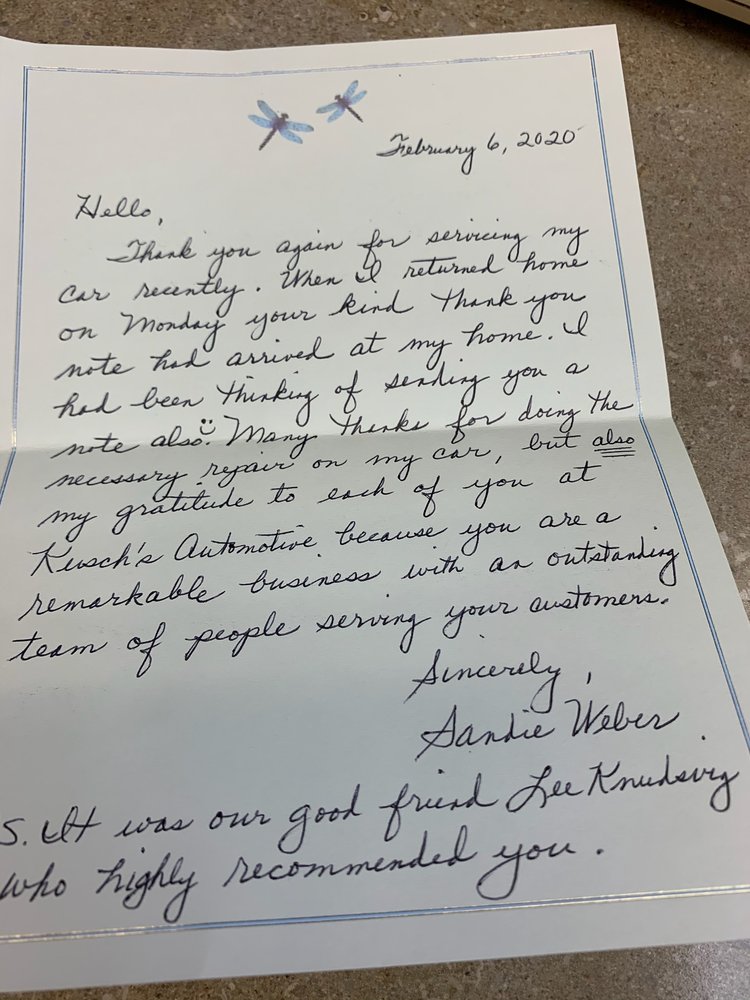 February 6, 2020
Hello,
Thank you again for servicing my
car recently. When I returned home
on Monday your kind thank you
note had arrived at my home. I
had been thinking of sending you a
note also. Many thanks for doing the
necessary repair on my car, but also
my gratitude to each of you at
Kusch's Automotive because you are a
remarkable business with an outstanding
team of people serving your customers.
Sincerely,
Sandie Weber
S. It was our good friend Lee Knudsvig
who highly recommended you.